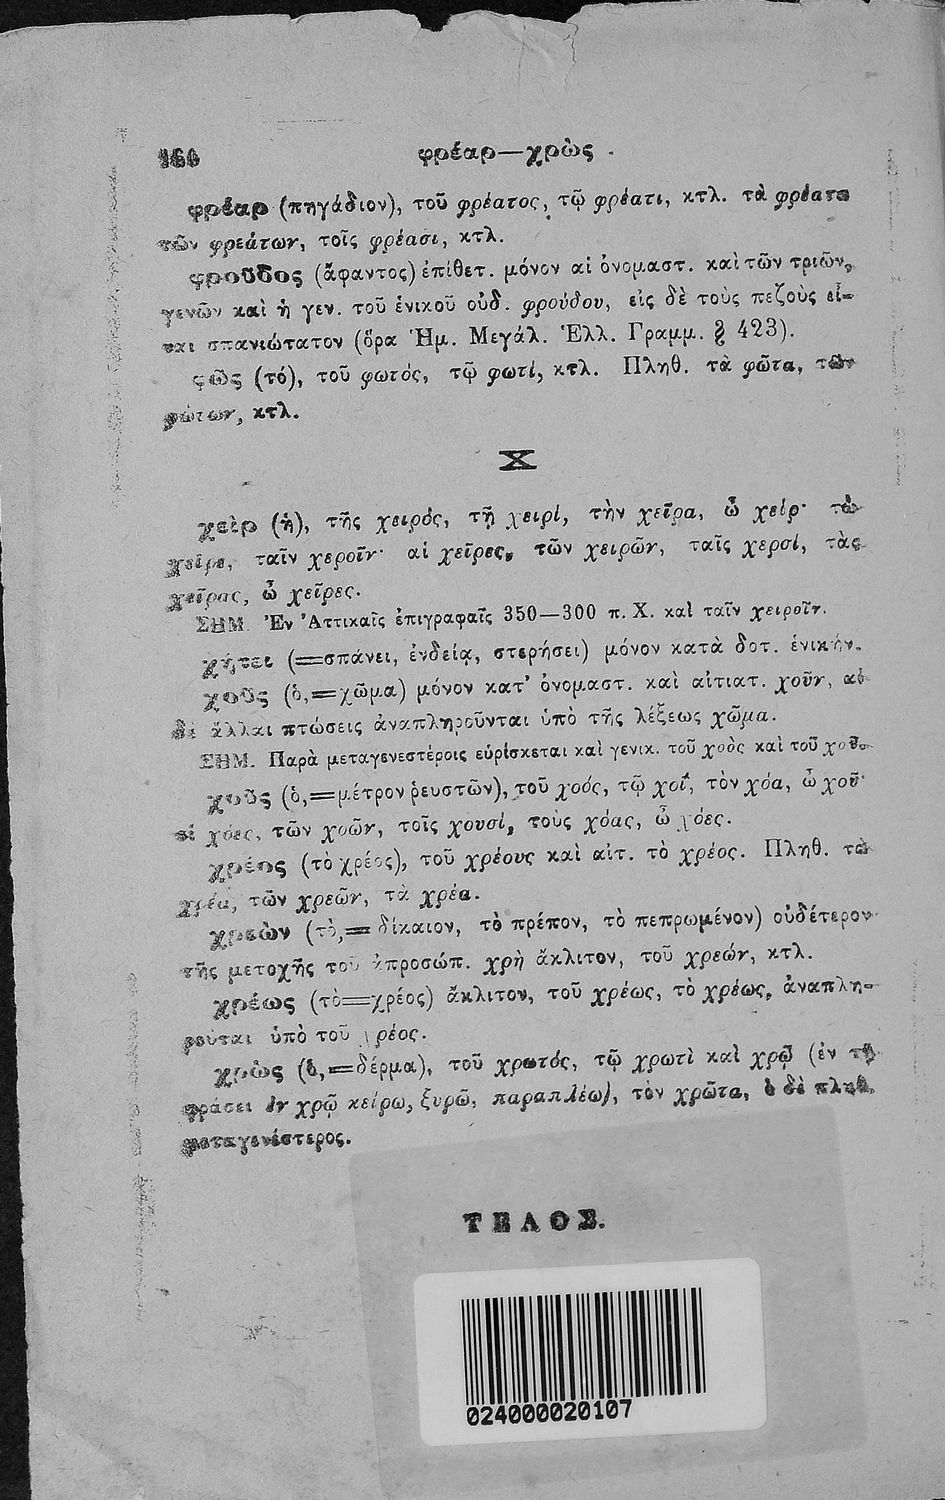 160 φρέαρ—χρὼς
φρέαρ (πηγάδιον), τοῦ φρέατος, τῷ φρέατι, κτλ. τὰ φρέατα
τῶν φρεάτων, τοῖς φρέασι, κτλ.
φροῦδος (ἄφαντος) ἐπίθετ. μόνον αἱ ὀνομαστ. καὶ τῶν τριῶν
γενῶν καὶ ἡ γεν. τοῦ ἑνικοῦ οὐδ. φρούδου, εἰς δὲ τοὺς πεζοὺς εἶ-
ναι σπανιώτατον (ὅρα Ἡμ. Μεγάλ. Ἑλλ. Γραμμ. § 423).
φῶς (τό), τοῦ φωτός, τῷ φωτί, κτλ. Πληθ. τὰ φῶτα, τῶν
φώτων, κτλ.
Χ
χεὶρ (ἡ), τῆς χειρός, τῇ χειρί, τὴν χεῖρα, ὦ χείρ· τὼ
χεῖρε, ταῖν χεροῖν· αἱ χεῖρες, τῶν χειρῶν, ταῖς χερσί, τὰς
χεῖρας, ὦ χεῖρες.
ΣΗΜ. Ἐν Ἀττικαῖς ἐπιγραφαῖς 350—300 π. Χ. καὶ ταῖν χειροῖν.
χήτει (=σπάνει, ἐνδείᾳ, στερήσει) μόνον κατὰ δοτ. ἑνικήν.
χοῦς (ὁ,=χῶμα) μόνον κατ' ὀνομαστ. καὶ αἰτιατ. χοῦν, αἱ
δὲ ἄλλαι πτώσεις ἀναπληροῦνται ὑπὸ τῆς λέξεως χῶμα.
ΣΗΜ. Παρὰ μεταγενεστέροις εὑρίσκεται καὶ γενικ. τοῦ χοὸς καὶ τοῦ χοῦ.
χοῦς (ὁ,=μέτρον ῥευστῶν), τοῦ χοός, τῷ χοΐ, τὸν χόα, ὦ χοῦ·
οἱ χόες, τῶν χοῶν, τοῖς χουσί, τοὺς χόας, ὦ χόες.
χρέος (τὸ χρέος), τοῦ χρέους καὶ αἰτ. τὸ χρέος. Πληθ. τὰ
χρέα, τῶν χρεῶν, τὰ χρέα.
χρεὼν (τὸ,= δίκαιον, τὸ πρέπον, τὸ πεπρωμένον) οὐδέτερον
τῆς μετοχῆς τοῦ ἀπροσώπ. χρὴ ἄκλιτον, τοῦ χρεών, κτλ.
χρέως (τὸ=χρέος) ἄκλιτον, τοῦ χρέως, τὸ χρέως, ἀναπλη-
ροῦται ὑπὸ τοῦ χρέος.
χρὼς (ὁ,=δέρμα), τοῦ χρωτός, τῷ χρωτὶ καὶ χρῷ (ἐν τῇ
φράσει ἐν χρῷ κείρω, ξυρῶ, παραπλέω), τὸν χρῶτα, ὁ δὲ πληθ.
μεταγενέστερος.
ΤΕΛΟΣ.
024000020107